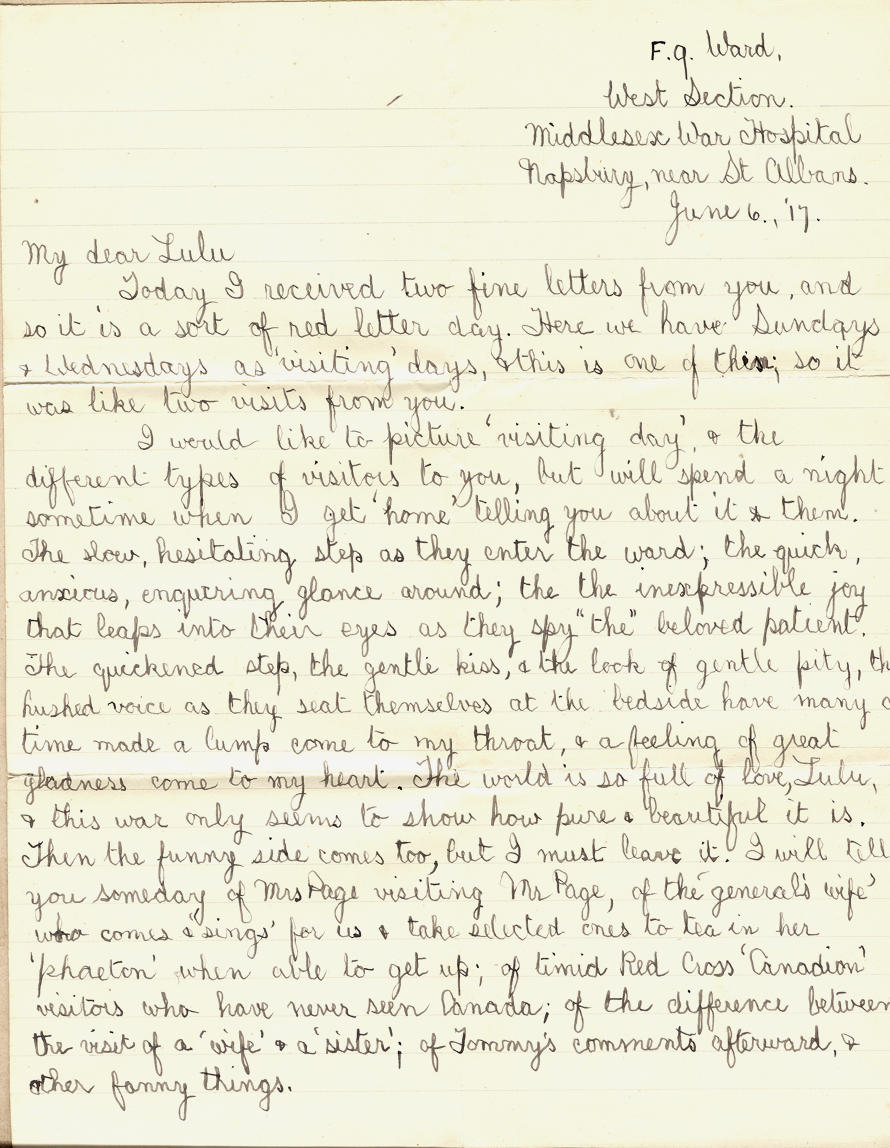 F.9. Ward,
West Section.
Middlesex War Hospital
Napsbury, near St Albans.
June 6., '17.
My dear Lulu
Today I received two fine letters from you, and
so it is a sort of red letter day. Here we have Sundays
& Wednesdays as 'visiting' days, & this is one of them; so it
was like two visits from you.
I would like to picture 'visiting day', & the
different types of visitors to you, but will spend a night
sometime when I get 'home' telling you about it & them.
The slow, hesitating step as they enter the ward; the quick,
anxious, enquiring glance around; the the inexpressible joy
that leaps into their eyes as they spy "the" beloved patient.
The quickened step, the gentle kiss, & the look of gentle pity, the
hushed voice as they seat themselves at the bedside have many a
time made a lump come to my throat, & a feeling of great
gladness come to my heart. The world is so full of love, Lulu,
& this war only seems to show how pure & beautiful it is.
Then the funny side comes too, but I must leave it. I will tell
you someday of Mrs Page visiting Mr Page, of the 'general's wife'
who comes & 'sings' for us & take selected ones to tea in her
'phaeton' when able to get up; of timid Red Cross 'Canadion'
visitors who have never seen Canada; of the difference between
the visit of a 'wife' & a 'sister'; of Tommy's comments afterward, &
other fanny things.